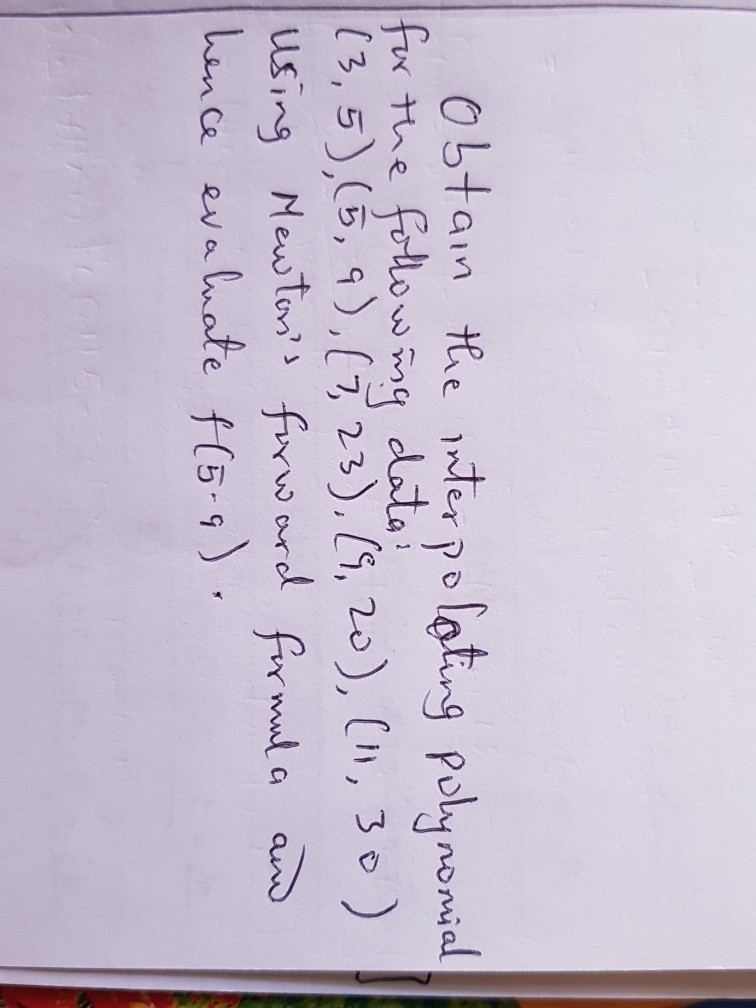 Obtain the interpolating polynomial
for the following data:
(3, 5), (5, 9), (7, 23), (9, 20), (11, 30)
using Newton's forward formula and
hence evaluate f(5.9).